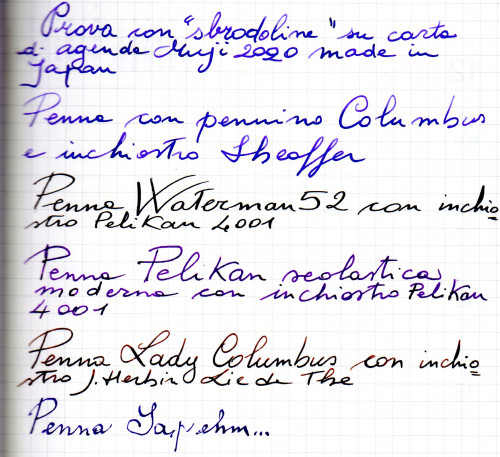 Prova con "sbrodoline" su carta
di agenda Muji 2020 made in
Japan
Penna con pennino Columbus
e inchiostro Sheaffer
Penna Waterman 52 con inchio
stro Pelikan 4001
Penna Pelikan scolastica
moderna con inchiostro Pelikan
4001
Penna Lady Columbus con inchio
stro J. Herbin Lie de The
Penna